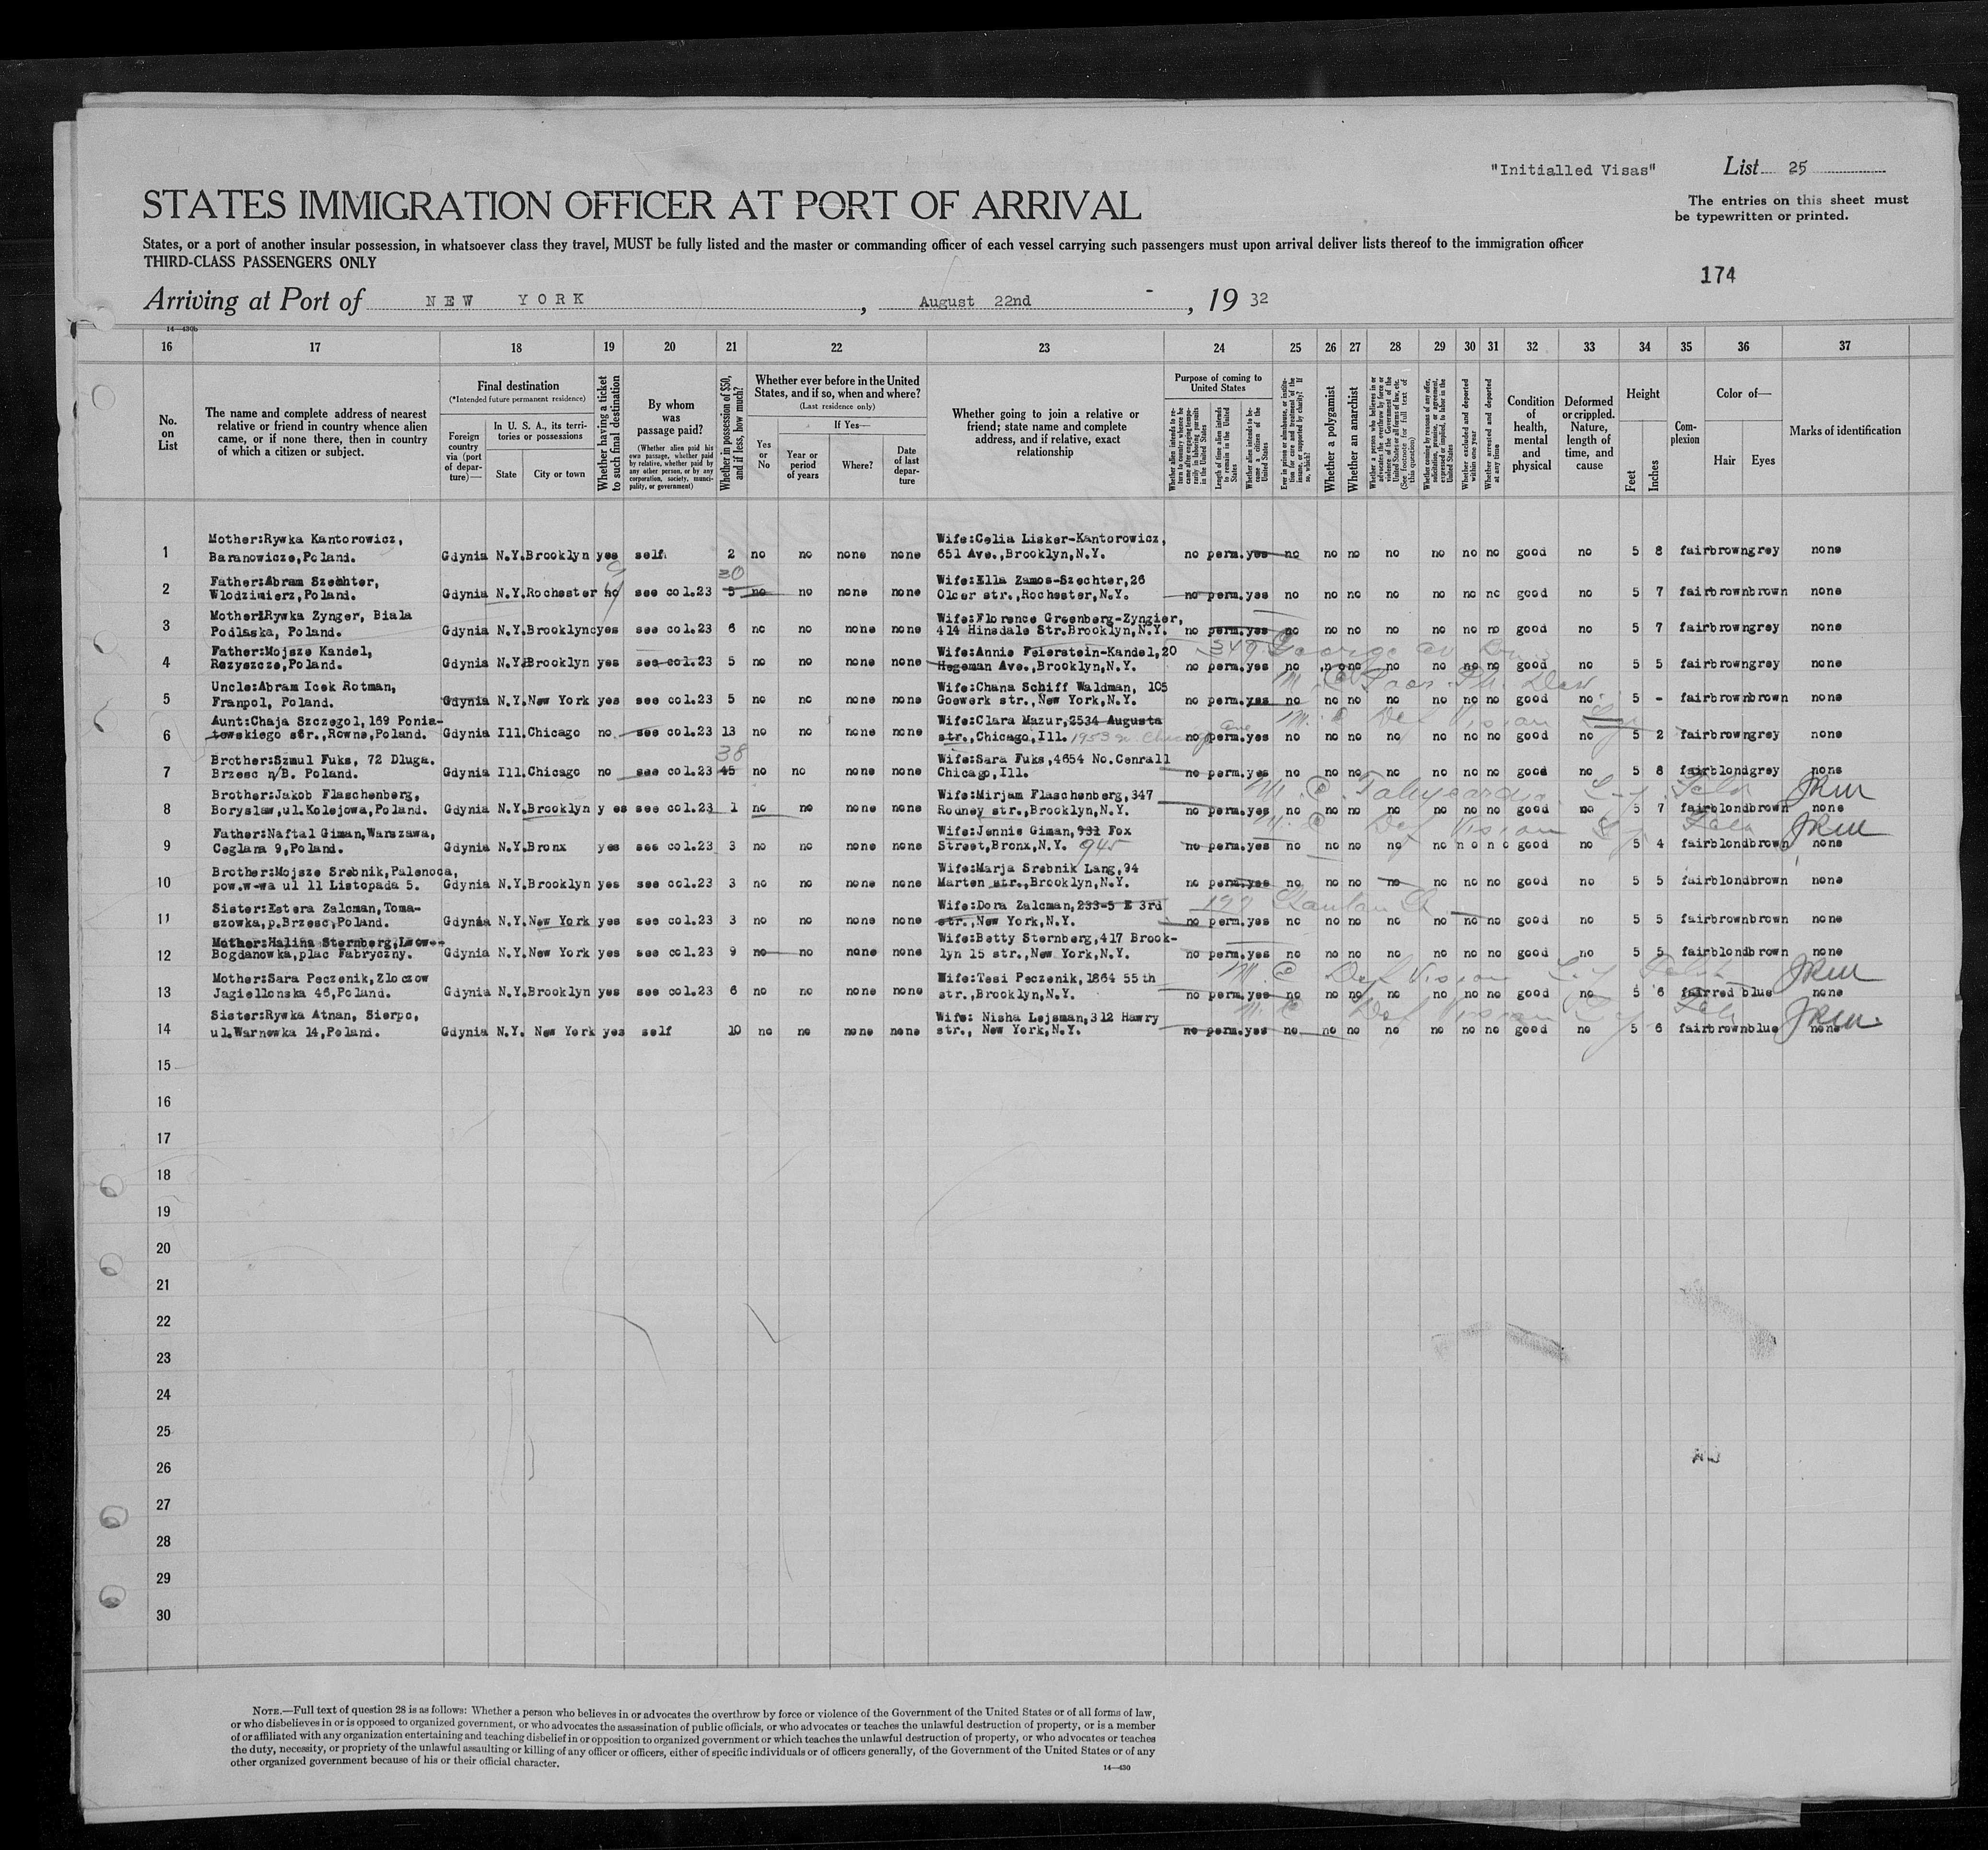 "Initialled Visas" List 25
STATES IMMIGRATION OFFICER AT PORT OF ARRIVAL
The entries on this sheet must
be typewritten or printed.
States, or a port of another insular possession, in whatsoever class they travel, MUST be fully listed and the master or commanding officer of each vessel carrying such passengers must upon arrival deliver lists thereof to the immigration officer
THIRD-CLASS PASSENGERS ONLY
174
Arriving at Port of NEW YORK, August 22nd, 1932
14—430b
16 17 18 19 20 21 22 23 24 25 26 27 28 29 30 31 32 33 34 35 36 37
No. on List
The name and complete address of nearest relative or friend in country whence alien came, or if none there, then in country of which a citizen or subject.
Final destination
(*Intended future permanent residence)
Foreign country via (port of departure)—
In U. S. A., its territories or possessions
State City or town
Whether having a ticket to such final destination
By whom was passage paid?
(Whether alien paid his own passage, whether paid by relative, whether paid by any other person, or by any corporation, society, municipality, or government)
Whether in possession of $50, and if less, how much?
Whether ever before in the United States, and if so, when and where?
(Last residence only)
Yes or No
If Yes—
Year or period of years
Where?
Date of last departure
Whether going to join a relative or friend; state name and complete address, and if relative, exact relationship
Purpose of coming to United States
Whether alien intends to return to country whence he came after engaging temporarily in laboring pursuits in the United States
Length of time alien intends to remain in the United States
Whether alien intends to become a citizen of the United States
Ever in prison or almshouse, or institution for care and treatment of the insane, or supported by charity? If so, which?
Whether a polygamist
Whether an anarchist
Whether a person who believes in or advocates the overthrow by force or violence of the Government of the United States or all forms of law, etc. (See footnote for full text of this question)
Whether coming by reasons of any offer, solicitation, promise, or agreement, expressed or implied, to labor in the United States
Whether excluded and deported within one year
Whether arrested and deported at any time
Condition of health, mental and physical
Deformed or crippled. Nature, length of time, and cause
Height
Feet Inches
Complexion
Color of—
Hair Eyes
Marks of identification
Mother:Rywka Kantorowicz, Wife:Celia Lisker-Kantorowicz,
1 Baranowicze,Poland. Gdynia N.Y. Brooklyn yes self 2 no no none none 651 Ave.,Brooklyn,N.Y. no perm. yes no no no no no no no good no 5 8 fair brown grey none
Father:Abram Szechter, 30 Wife:Ella Zamos-Szechter,26
2 Wlodzimierz,Poland. Gdynia N.Y. Rochester no see col.23 5 no no none none Olcer str.,Rochester,N.Y. no perm. yes no no no no no no no good no 5 7 fair brown brown none
Mother:Rywka Zynger, Biala Wife:Florence Greenberg-Zyngier,
3 Podlaska, Poland. Gdynia N.Y. Brooklyn yes see col.23 6 no no none none 414 Hinsdale Str.Brooklyn,N.Y. no perm. yes no no no no no no no good no 5 7 fair brown grey none
Father:Mojsze Kandel, Wife:Annie Feierstein-Kandel,20 349 George
4 Rezyszcze,Poland. Gdynia N.Y. Brooklyn yes see col.23 5 no no none none Hegeman Ave.,Brooklyn,N.Y. no perm. yes no no no no no no no good no 5 5 fair brown grey none
Uncle:Abram Icek Rotman, Wife:Chana Schiff Waldman, 105 M.C. Poor Ph. Dev.
5 Franpol, Poland. Gdynia N.Y. New York yes see col.23 5 no no none none Goewerk str.,New York,N.Y. no perm. yes no no no no no no no good no. 5 - fair brown brown none
Aunt:Chaja Szczegol,169 Ponia- Wife:Clara Mazur,2534 Augusta Ave M.C Def Vision
6 towskiego str.,Rowne,Poland. Gdynia Ill. Chicago no see col.23 13 no no none none str.,Chicago,Ill. 1953 no perm. yes no no no no no no no good no 5 2 fair brown grey none
Brother:Szmul Fuks, 72 Dluga. 38 Wife:Sara Fuks,4654 No.Cenrall
7 Brzesc n/B. Poland. Gdynia Ill. Chicago no see col.23 45 no no none none Chicago,Ill. no perm. yes no no no no no no no good no 5 8 fair blond grey none
Brother:Jakob Flaschenberg, Wife:Mirjam Flaschenberg,347 M.C. Tahycardia JRM
8 Boryslaw,ul.Kolejowa,Poland. Gdynia N.Y. Brooklyn yes see col.23 1 no no none none Rodney str.,Brooklyn,N.Y. no perm. yes no no no no no no no good no 5 7 fair blond brown none
Father:Naftal Giman,Warszawa, Wife:Jennie Giman,931 Fox M.C Def Vision JRM
9 Ceglana 9,Poland. Gdynia N.Y. Bronx yes see col.23 3 no no none none Street,Bronx,N.Y. 945 no perm. yes no no no no no no no good no 5 4 fair blond brown none
Brother:Mojsze Srebnik,Palenoca, Wife:Marja Srebnik Lang,94
10 pow.w-wa ul 11 Listopada 5. Gdynia N.Y. Brooklyn yes see col.23 3 no no none none Marten str.,Brooklyn,N.Y. no perm. yes no no no no no no no good no 5 5 fair blond brown none
Sister:Estera Zalcman,Toma- Wife:Dora Zalcman,233-5 E 3rd 199
11 szowka,p.Brzesc,Poland. Gdynia N.Y. New York yes see col.23 3 no no none none str.,New York,N.Y. no perm. yes no no no no no no no good no 5 5 fair brown brown none
Mother:Halina Sternberg,Lwow- Wife:Betty Sternberg,417 Brook-
12 Bogdanowka,plac Fabryczny. Gdynia N.Y. New York yes see col.23 9 no no none none lyn 15 str.,New York,N.Y. no perm. yes no no no no no no no good no 5 5 fair blond brown none
Mother:Sara Peczenik,Zloczow Wife:Tesi Peczenik,1864 55th M.C Def Vision JRM
13 Jagiellonska 46,Poland. Gdynia N.Y. Brooklyn yes see col.23 6 no no none none str.,Brooklyn,N.Y. no perm. yes no no no no no no no good no 5 6 fair red blue none
Sister:Rywka Atnan, Sierpc, Wife: Nisha Lejsman,312 Hawry M.C Def Vision JRM.
14 ul.Warnowka 14,Poland. Gdynia N.Y. New York yes self 10 no no none none str., New York,N.Y. no perm. yes no no no no no no no good no 5 6 fair brown blue none
15
16
17
18
19
20
21
22
23
24
25
26
27
28
29
30
NOTE.—Full text of question 28 is as follows: Whether a person who believes in or advocates the overthrow by force or violence of the Government of the United States or of all forms of law,
or who disbelieves in or is opposed to organized government, or who advocates the assassination of public officials, or who advocates or teaches the unlawful destruction of property, or is a member
of or affiliated with any organization entertaining and teaching disbelief in or opposition to organized government or which teaches the unlawful destruction of property, or who advocates or teaches
the duty, necessity, or propriety of the unlawful assaulting or killing of any officer or officers, either of specific individuals or of officers generally, of the Government of the United States or of any
other organized government because of his or their official character.
14—430